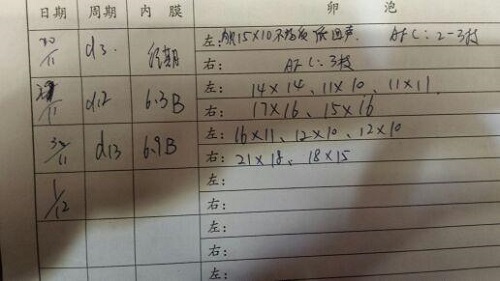 日期 周期 内膜 卵泡
20/11 d3. 经期 左: 15×10不均质低回声. AFC:2-3枚
右: AFC:3枚
/11 d12 6.3B 左: 14×14、11×10、11×11.
右: 17×16、15×16
30/11 d13 6.9B 左: 16×11、12×10、12×10
右: 21×18、18×15
1/12 左:
右:
左:
右:
左: